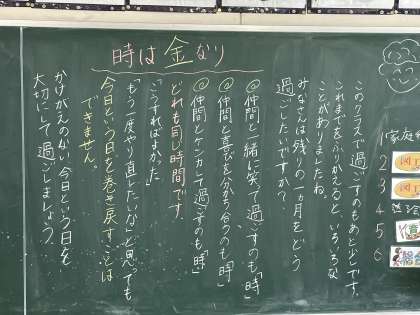 時は金なり
このクラスで過ごすのもあと少しです。
これまでをふりかえると、いろいろな
ことがありましたね。
みなさんは残りの一ヵ月をどう
過ごしたいですか？
◎仲間と一緒に笑って過ごすのも「時」
◎仲間と喜びを分かち合うのも「時」
◎仲間とケンカして過ごすのも「時」
どれも同じ時間です。
「こうすればよかった」
「もう一度やり直したい」など思っても
今日という日を巻き戻すことは
できません。
かけがえのない今日という日を
大切にして過ごしましょう。
家庭
2
3
4
5
6
総合